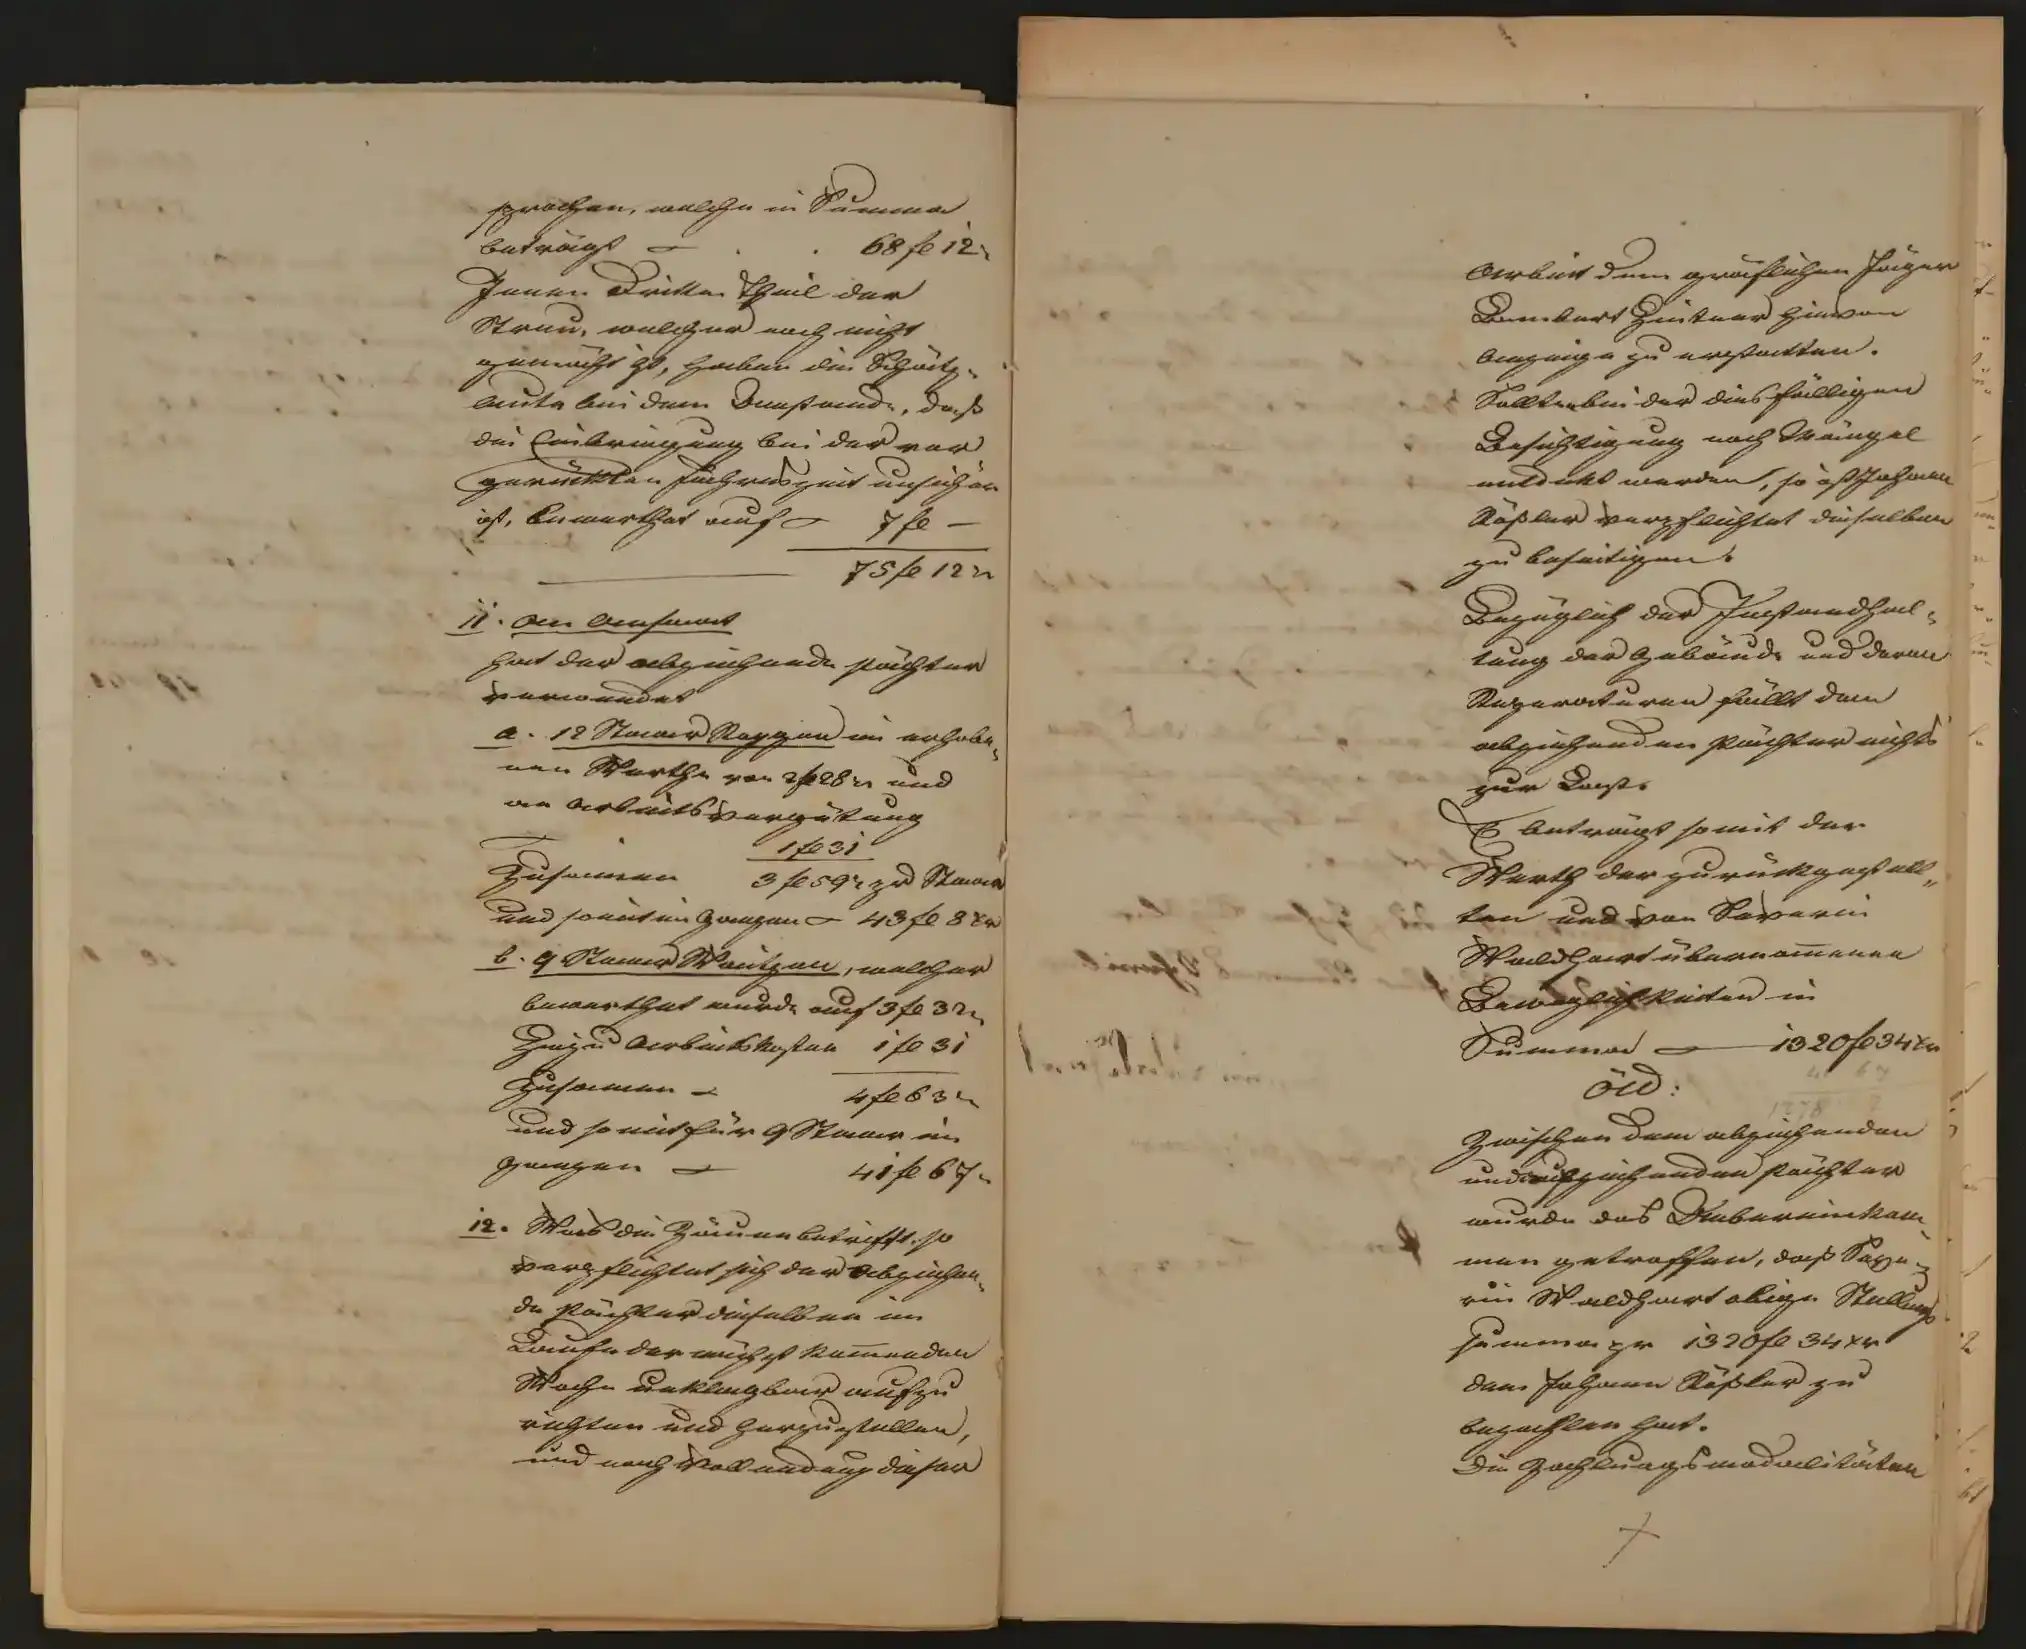 sprochen, welche in Summa
beträgt — . . 68 fl 12 xr
Jenen Dritten Theil der
Streu, welcher noch nicht
gemacht ist, haben die Schätz-
leute bei dem Umstande, daß
die Einbringung bei der vor
gerückten Jahreszeit unsicher
ist, bewerthet auf — 7 fl —
75 fl 12 xr
11. An Ansaat
hat der abziehende Pächter
verwendet
a. 12 Staar Roggen im erhobe-
nen Werthe von 2 fl 28 xr und
an Arbeitsvergütung
1 fl 31
Zusammen 3 fl 59 xr pr Staar
und somit im Ganzen — 43 fl 8 xr
b. 9 Staar Waitzen, welcher
bewerthet wurde auf 3 fl 32 xr
Hiezu Arbeitskosten 1 fl 31
Zusammen — 4 fl 63 xr
und somit für 9 Staar im
Ganzen — 41 fl 67 xr
12. Was die Zäune betrifft, so
verpflichtet sich der abziehen-
de Pächter dieselben im
Laufe der nächst kommenden
Woche unklagbar aufzu
richten und herzustellen,
und nach Vollendung dieser
Arbeit dem gräflichen Jäger
Hintner hievon
Anzeige zu erstatten.
Sollten bei der diesfälligen
Besichtigung noch Mängel
entdekt werden, so ist Johann
Rößler verpflichtet dieselben
zu beseitigen.
Bezüglich der Instandhal-
tung der Gebäude und deren
Reparaturen fällt dem
abziehenden Pächter nichts
zur Last.
Es beträgt somit der
Werth der zurückgestell-
ten und von Severin
Waldhart übernommenen
Beweglichkeiten in
Summa — 1320 fl 34 xr
ÖW:
Zwischen dem abziehenden
und aufziehenden Pächter
wurde das Uibereinkom-
men getroffen, daß Seve-
rin Waldhart obige Stellungs
summa pr 1320 fl 34 xr
dem Johann Rößler zu
bezahlen hat.
Die Zahlungsmodalitäten